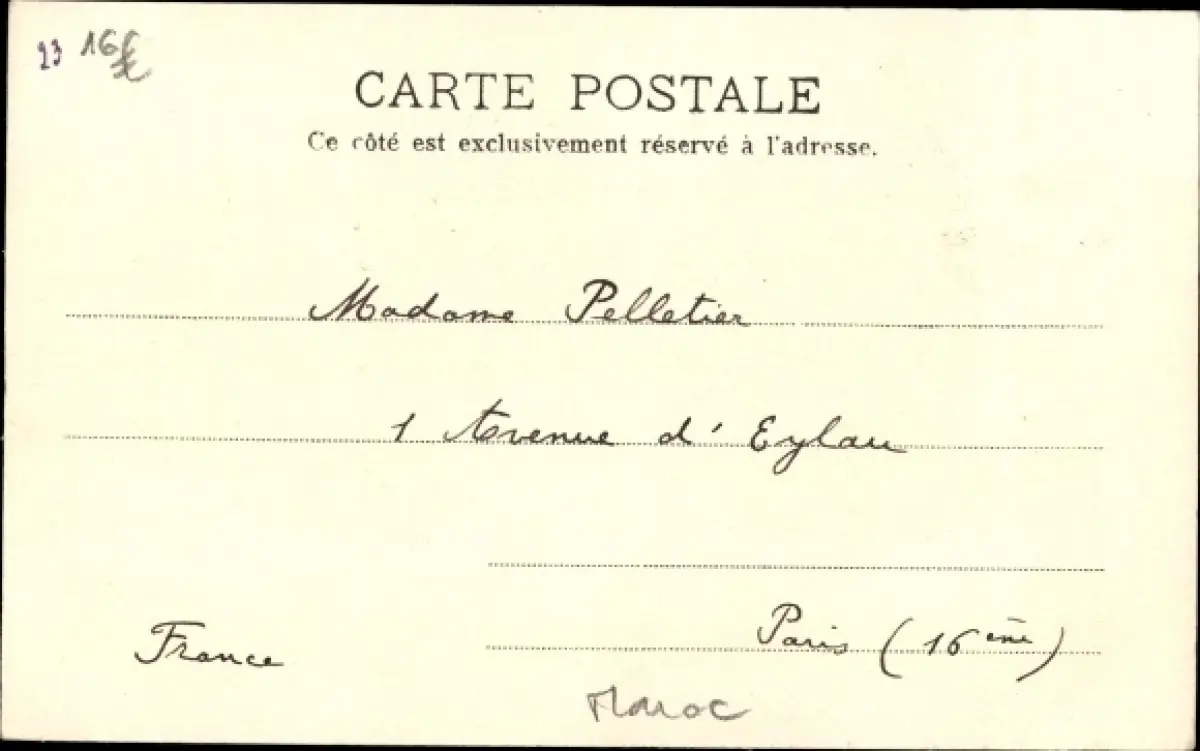 23 16€
CARTE POSTALE
Ce côté est exclusivement réservé à l'adresse.
Madame Pelletier
1 Avenue d'Eylau
Paris (16ème)
France
Maroc